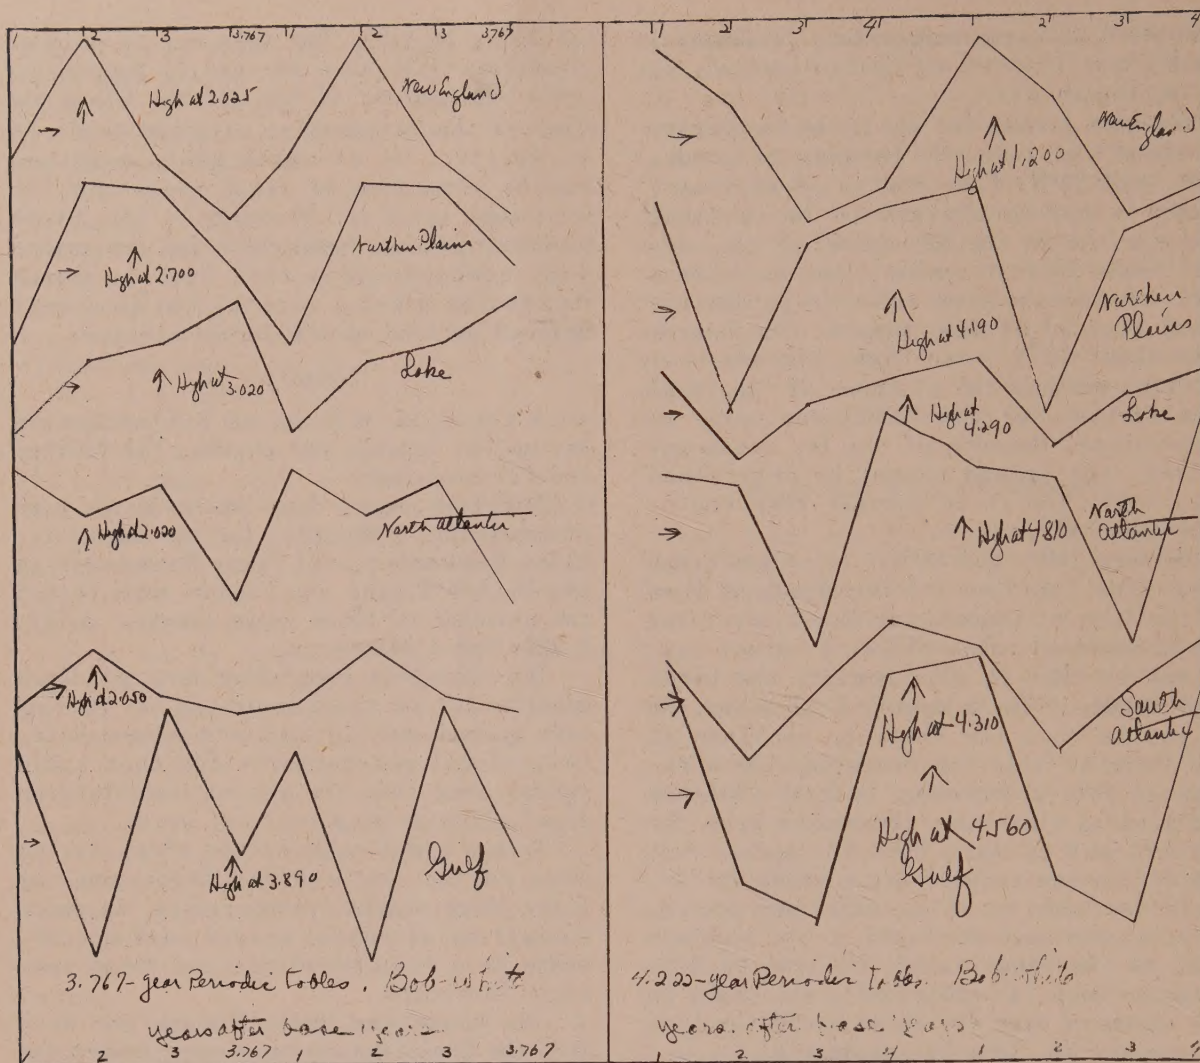 1 2 3 3.767 1 2 3 3.767
High at 2.025
New England
High at 2.700
Northern Plains
High at 3.020
Lake
High at 2.020
North Atlantic
High at 2.050
High at 3.890
Gulf
3.767-year Periodic Tables. Bob-white
years after base years
2 3 3.767 1 2 3 3.767
1 2 3 4 1 2 3 4
New England
High at 1.200
Northern
Plains
High at 4.190
High at
4.290
Lake
High at 4.810
North
Atlantic
High at 4.310
South
Atlantic
High at 4.560
Gulf
4.222-year Periodic Tables. Bob-white
years after base years
1 2 3 4 1 2 3